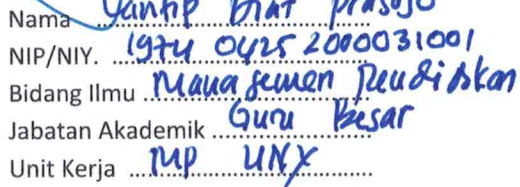 Nama Yantip Diat Prasojo
NIP/NIY. 1974 0425 2000031001
Bidang Ilmu Manajemen Pendidikan
Jabatan Akademik Guru Besar
Unit Kerja MP UNY